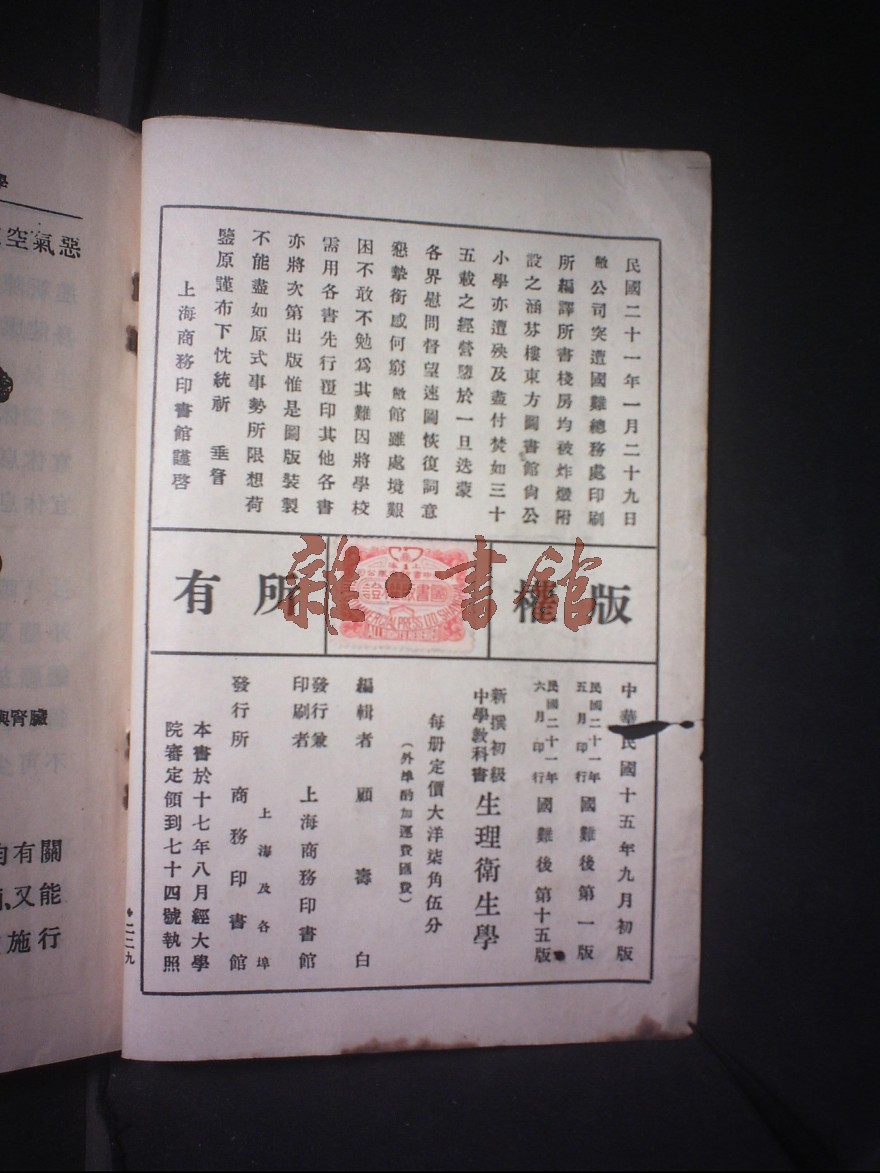 民國二十一年一月二十九日
敝公司突遭國難總務處印刷
所編譯所書棧房均被炸燬附
設之涵芬樓東方圖書館尙公
小學亦遭殃及盡付焚如三十
五載之經營隳於一旦迭蒙
各界慰問督望速圖恢復詞意
懇摯銜感何窮敝館雖處境艱
困不敢不勉爲其難因將學校
需用各書先行覆印其他各書
亦將次第出版惟是圖版裝製
不能盡如原式事勢所限想荷
鑒原謹布下忱統祈 垂詧
上海商務印書館謹啓
版權所有
雜書館
中華民國十五年九月初版
民國二十一年五月印行 國難後第一版
民國二十一年六月印行 國難後第十五版
新撰初級中學教科書 生理衛生學
每册定價大洋柒角伍分
(外埠酌加運費匯費)
編輯者 顧壽白
發行兼印刷者 上海商務印書館
上海及各埠
發行所 商務印書館
本書於十七年八月經大學
院審定領到七十四號執照
二二九
惡氣空
與腎臟
有關
又能
施行